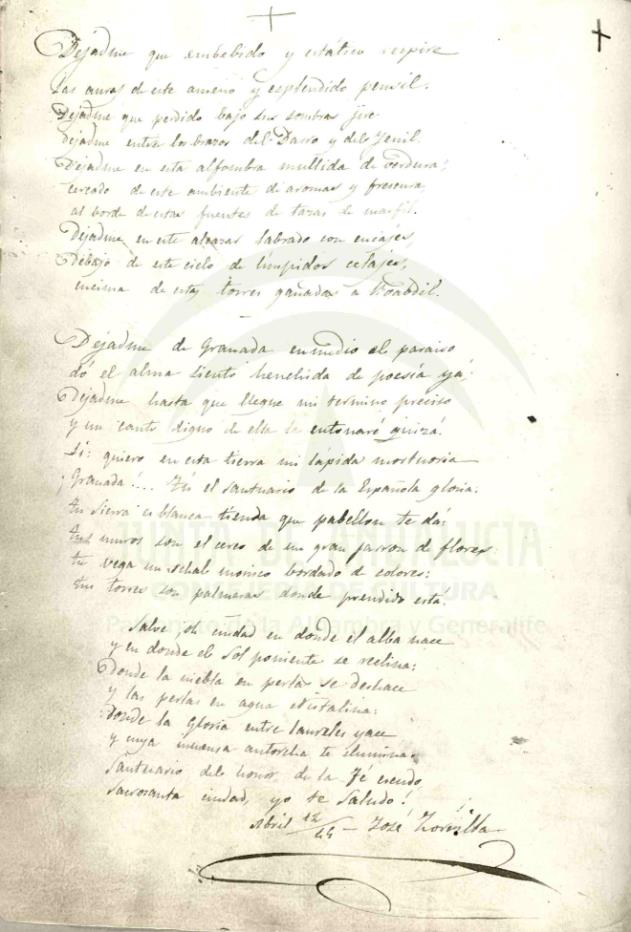 Dejadme que embebido y estático respire
las auras de este ameno y esplendido pensil.
Dejadme que perdido bajo sus sombras jire
dejadme entre los brazos del Darro y del Jenil.
Dejadme en esta alfombra mullida de verdura,
cercado de este ambiente de aromas y frescura,
al borde de estas fuentes de tazas de marfil.
Dejadme en este alcazar labrado con encajes,
Debajo de este cielo de límpidos celajes,
encima de estas torres ganadas a Boabdil.
Dejadme de Granada en medio el paraiso
dó el alma siento henchida de poesía yá:
Dejadme hasta que llegue mi termino preciso
y un canto digno de ella la entonaré quizá.
Sí: quiero en esta tierra mi lápida mortuoria
¡Granada!... Tú el santuario de la Española gloria:
tu Sierra es blanca tienda que pabellon te dá:
tus muros son el cerco de un gran jarron de flores:
tu vega un schal morisco bordado de colores:
tus torres son palmeras donde prendido está.
Salve ¡oh ciudad en donde el alba nace
y en donde el Sol poniente se reclina:
Donde la niebla en perlas se deshace
y las perlas en agua cristalina:
donde la Gloria entre laureles yace
y cuya inmensa antorcha te ilumina:
Santuario del honor, de la Fé escudo,
Sacrosanta ciudad, yo te Saludo!
Abril 12/45 – José Zorrilla
JUNTA DE ANDALUCÍA
CONSEJERÍA DE CULTURA
Patronato de la Alhambra y Generalife